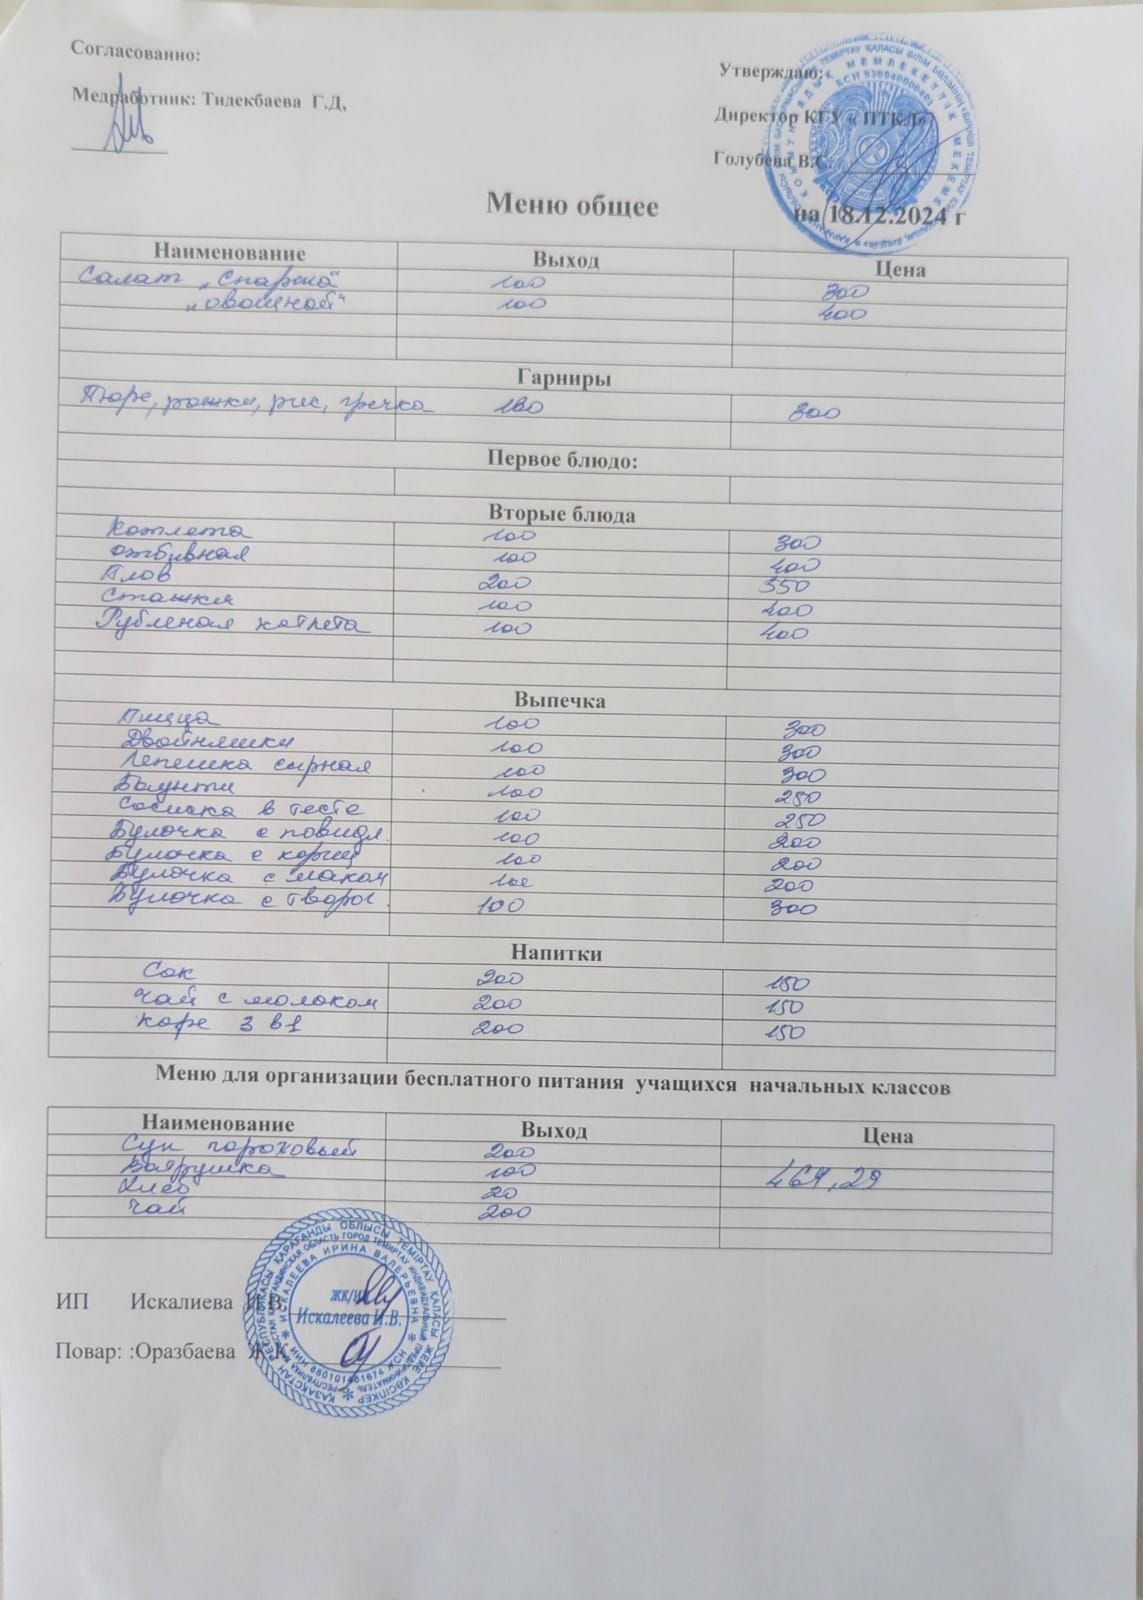 Согласованно:
Утверждаю:
Медработник: Тидекбаева Г.Д,
Директор КГУ « ПТКЛ»
Голубева В.С.
Меню общее
на 18.12.2024 г
Наименование Выход Цена
Салат „Спаржа“ 100 300
„овощной“ 100 400
Гарниры
Пюре, рожки, рис, гречка 180 300
Первое блюдо:
Вторые блюда
Котлета 100 300
отбивная 100 400
Плов 200 550
Сташки 100 400
Рубленая котлета 100 400
Выпечка
Пицца 100 300
Двойняшки 100 300
Лепешка сырная 100 300
Баунти 100 250
Сосиска в тесте 100 250
Булочка с повидл. 100 200
Булочка с кориц 100 200
Булочка с маком 100 200
Булочка с творог. 100 300
Напитки
Сок 200 150
Чай с молоком 200 150
Кофе 3 в 1 200 150
Меню для организации бесплатного питания учащихся начальных классов
Наименование Выход Цена
Суп гороховый 200
Ватрушка 100 469,29
Хлеб 20
Чай 200
ИП Искалиева И.В.
ЖК/ИП
Искалеева И.В.
Повар: :Оразбаева Ж.К.